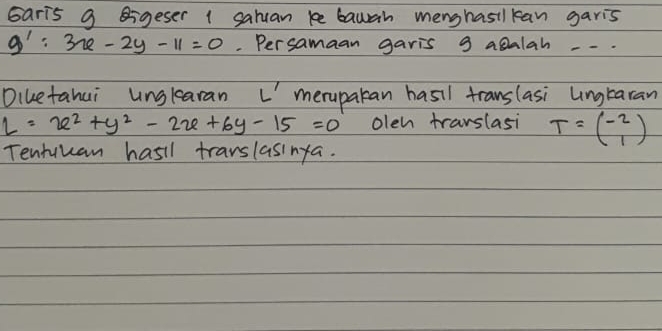 Garis g digeser 1 satuan ke bawah menghasilkan garis
g' : 3x - 2y - 11 = 0 . Persamaan garis g adalah ---.
Diketahui lingkaran L' merupakan hasil translasi lingkaran
L = x² + y² - 2x + 6y - 15 = 0 oleh translasi T = (-2 1)
Tentukan hasil translasinya.